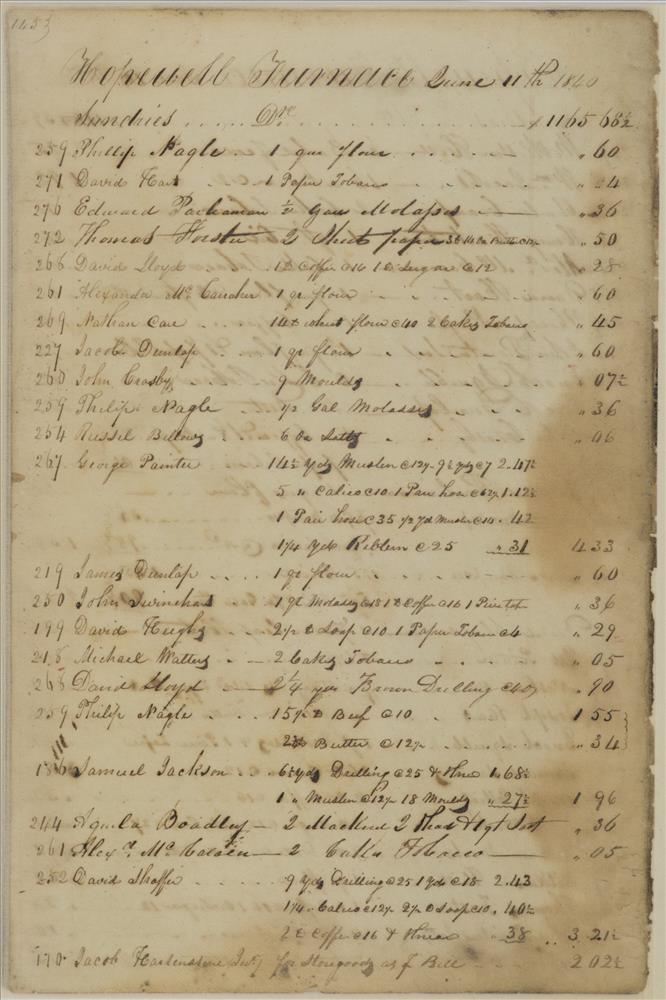 1453
Hopewell Furnace June 11th 1840
Sundries ..... Dre ............ $ 1165 68½
259 Phillip Nagle . 1 qur flour ...... " 60
271 David Hart .. 1 Paper Tobaco ..... " 04
276 Edward ½ Gau Molasses — " 36
272 Thomas 2 Sheet paper Butter " 50
266 David Lloyd ... 1 ℔ Coffe @16 1 ℔ Sugar @12 .. " 28
261 Alexander Mc 1 qr flour .. " 60
269 Nathan Care .... 14 ℔ wheat flour @40 2 Cakes Tobaco " 45
227 Jacob Dunlap .. 1 qr flour ...... " 60
260 John Crosby ... 9 Moulds ...... " 07½
259 Philip Nagle .. ½ Gal Molasses .... " 36
254 Russel Bellows ... 6 Oz Salts ..... " 06
267 George Painter .. 14½ Yds Muslen @12½ 9½ yds @7 2.47½
5 " Calico @10 1 Pair hose @62½ 1.12½
1 Pair hose @35 ½ Yd Muslen @14 . 42
1¼ Yds Ribben @25 " 31 4 33
219 James Dunlap .... 1 qr flour ..... " 60
250 John 1 qt Molasses @18 1 ℔ Coffe @16 1 " 36
199 David Hughs .... 2½ ℔ Soap @10 1 Paper Tobaco @4 " 29
218 Michael Watters . — 2 Cakes Tobaco ...... " 05
268 David Lloyd . — 2¼ yds Brown Drilling @40 " 90
259 Philip Nagle .. 15½ ℔ Beef @10 ..... 1 55
Butter @12½ ...... " 34
186 Samuel Jackson .. 6½ Yds Drilling @25 & 1.68½
1 " Muslen @12½ 18 Moulds " 27½ 1 96
244 Aquila Boadley — 2 Mackerel 2 " 36
261 Alexr. Mc — 2 Cakes Tobacco — " 05
252 David Shaffer ..... 9 Yds Drilling @25 1 yds @18 2.43
1¼ . Calico @12½ 2½ ℔ Soap @10 . 40½
2 ℔ Coffe @16 & " 38 .. 3 21½
170 . Jacob for Stonegoods as Bill .. 2 02½